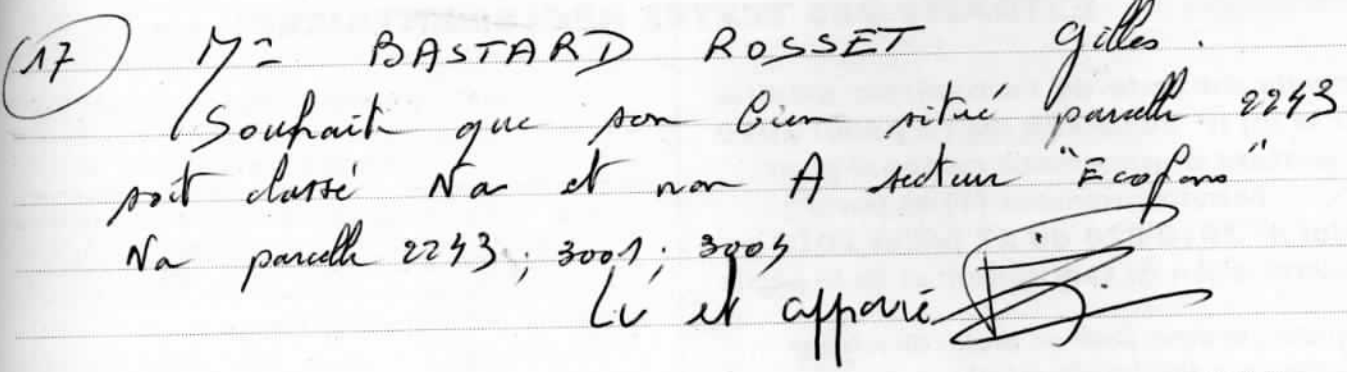 17 Mr BASTARD ROSSET Gilles.
Souhait que son bien situé parcelle 2243
soit classé Na et non A secteur "Ecofans"
Na parcelle 2243; 3001; 3004
Lu et approuvé